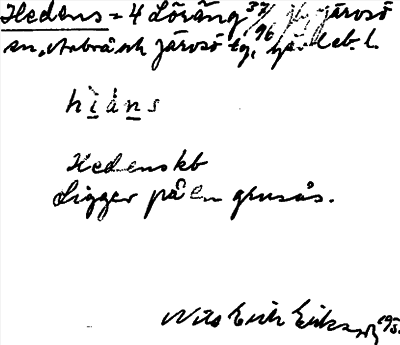 Hedens = 4 Löräng 37/96 Järvsö
sn, Arbrå och Järvsö tg, Gävleb. l.
h i å n s
Hedenskb
Ligger på en grusås.
Nils Erik Eriksson 195